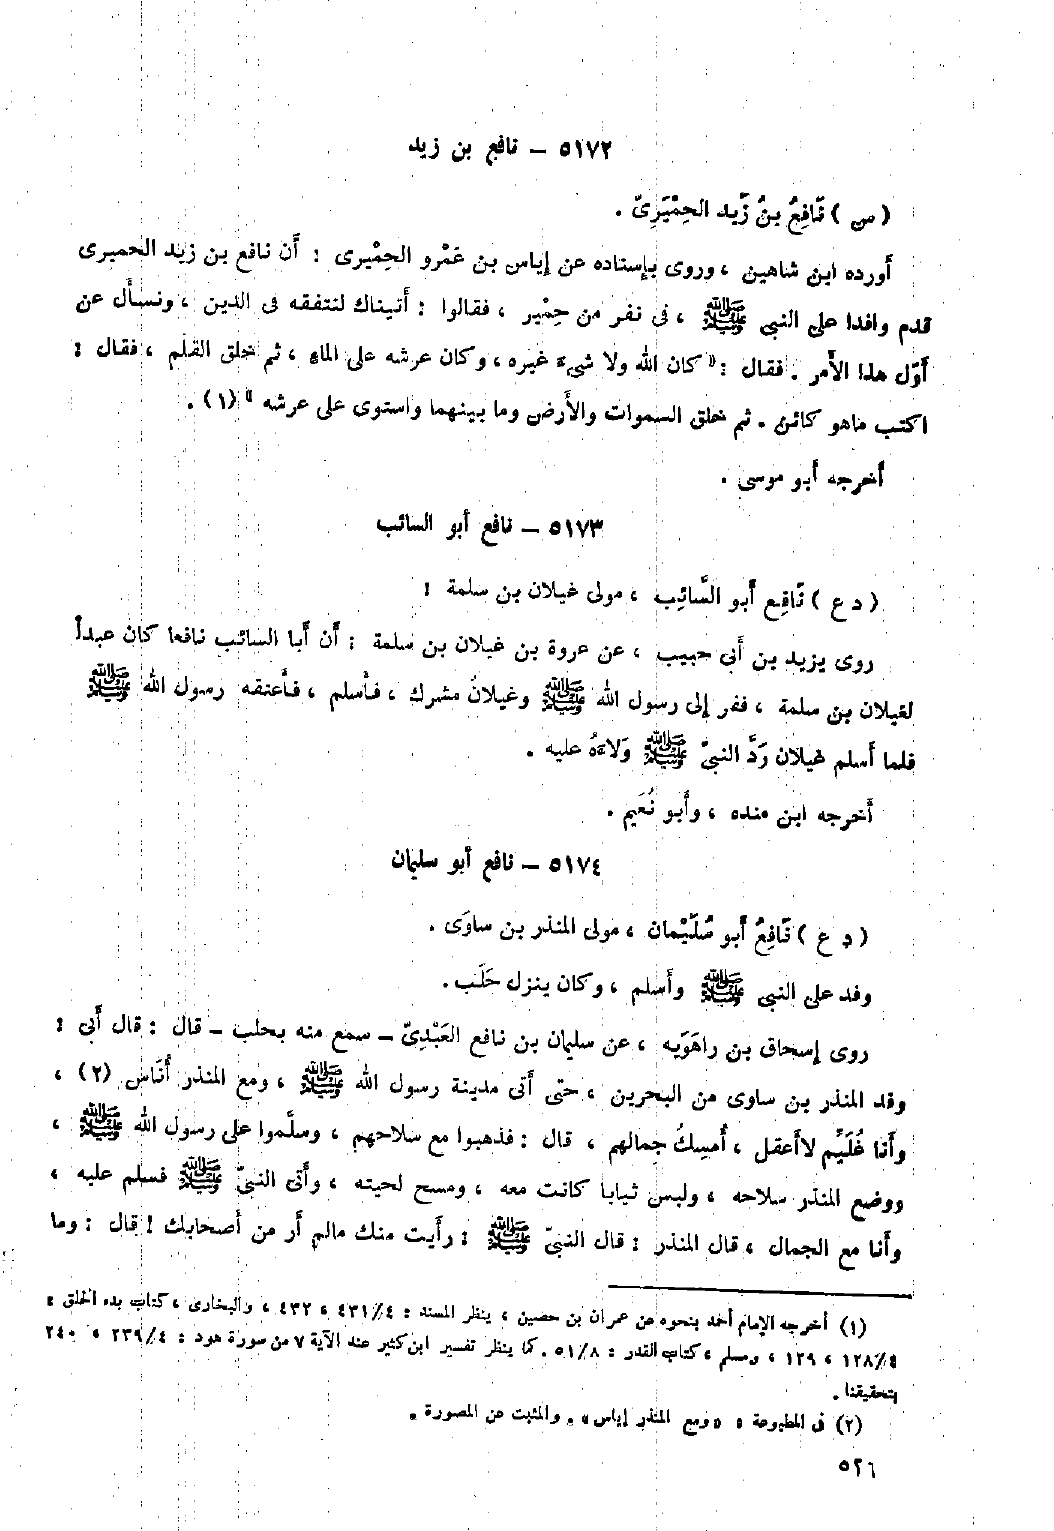 ٥١٧٢ – نافع بن زيد
( س ) نَافِعُ بنُ زَيد الحِمْيَرِىّ .
أورده ابن شاهين ، وروى بإسناده عن إياس بن عَمْرو الحِمْيرى : أن نافع بن زيد الحميرى
قدم وافدا على النبي ﷺ ، فى نفر من حِمْير ، فقالوا : أتيناك لنتفقه فى الدين ، ونسأل عن
أوّل هذا الأمر . فقال : « كان الله ولا شىء غيره ، وكان عرشه على الماء ، ثم خلق القلم ، فقال :
اكتب ماهو كائن . ثم خلق السموات والأرض وما بينهما واستوى على عرشه » (١) .
أخرجه أبو موسى .
٥١٧٣ – نافع أبو السائب
( د ع ) نَافِع أبو السَّائِب ، مولى غيلان بن سلمة :
روى يزيد بن أبى حبيب ، عن عروة بن غيلان بن سلمة : أن أبا السائب نافعا كان عبداً
لغيلان بن سلمة ، ففر إلى رسول الله ﷺ وغيلانُ مشرك ، فأسلم ، فأعتقه رسول الله ﷺ
فلما أسلم غيلان رَدَّ النبىّ ﷺ وَلاءهُ عليه .
أخرجه ابن منده ، وأبو نُعَيم .
٥١٧٤ – نافع أبو سليمان
( د ع ) نَافِعُ أبو سُلَيْمان ، مولى المنذر بن ساوَى .
وفد على النبي ﷺ وأسلم ، وكان ينزل حَلَب .
روى إسحاق بن راهَوَيه ، عن سليمان بن نافع العَبْدِىّ – سمع منه بحلب – قال : قال أبى :
وفد المنذر بن ساوى من البحرين ، حتى أتى مدينة رسول الله ﷺ ، ومع المنذر أُنَاس (٢) ،
وأنا غُلَيِّم لاأعقل ، أُمسِكُ جِمالهم ، قال : فذهبوا مع سلاحهم ، وسلَّموا على رسول الله ﷺ ،
ووضع المنذر سلاحه ، ولبس ثيابا كانت معه ، ومسح لحيته ، وأتى النبىّ ﷺ فسلم عليه ،
وأنا مع الجمال ، قال المنذر : قال النبىّ ﷺ : رأيت منك مالم أر من أصحابك ! قال : وما
(١) أخرجه الإمام أحمد بنحوه عن عمران بن حصين ، ينظر المسند : ٤/ ٤٣١ ، ٤٣٢ ، والبخارى ، كتاب بدء الخلق :
٤/ ١٢٨ ، ١٢٩ ، ومسلم ، كتاب القدر : ٨/ ٥١ . كما ينظر تفسير ابن كثير عند الآية ٧ من سورة هود : ٤/ ٢٣٩ ، ٢٤٠
بتحقيقنا .
(٢) فى المطبوعة : « ومع المنذر إياس » . والمثبت عن المصورة .
٥٢٦